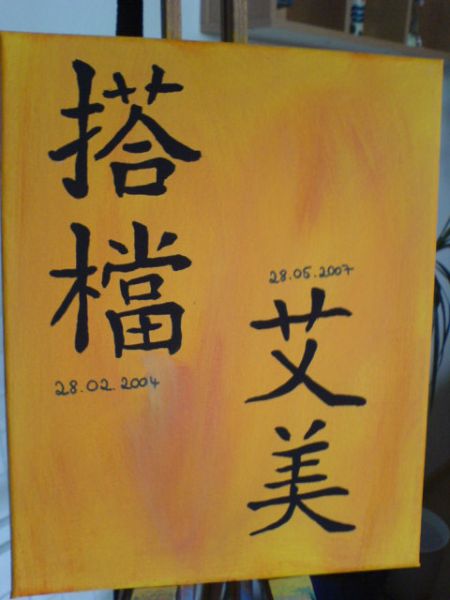 搭檔
28.02.2004
28.05.2007
艾美